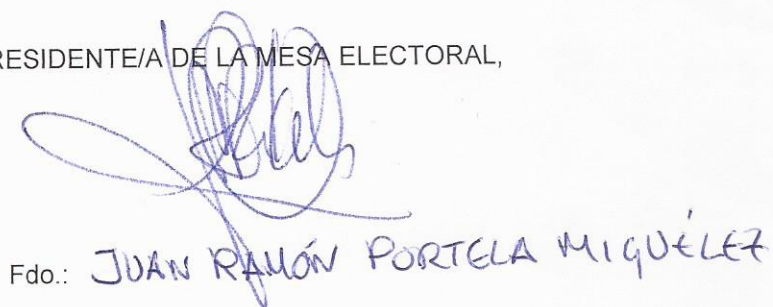 RESIDENTE/A DE LA MESA ELECTORAL,
Fdo.: JUAN RAMÓN PORTELA MIGUÉLEZ